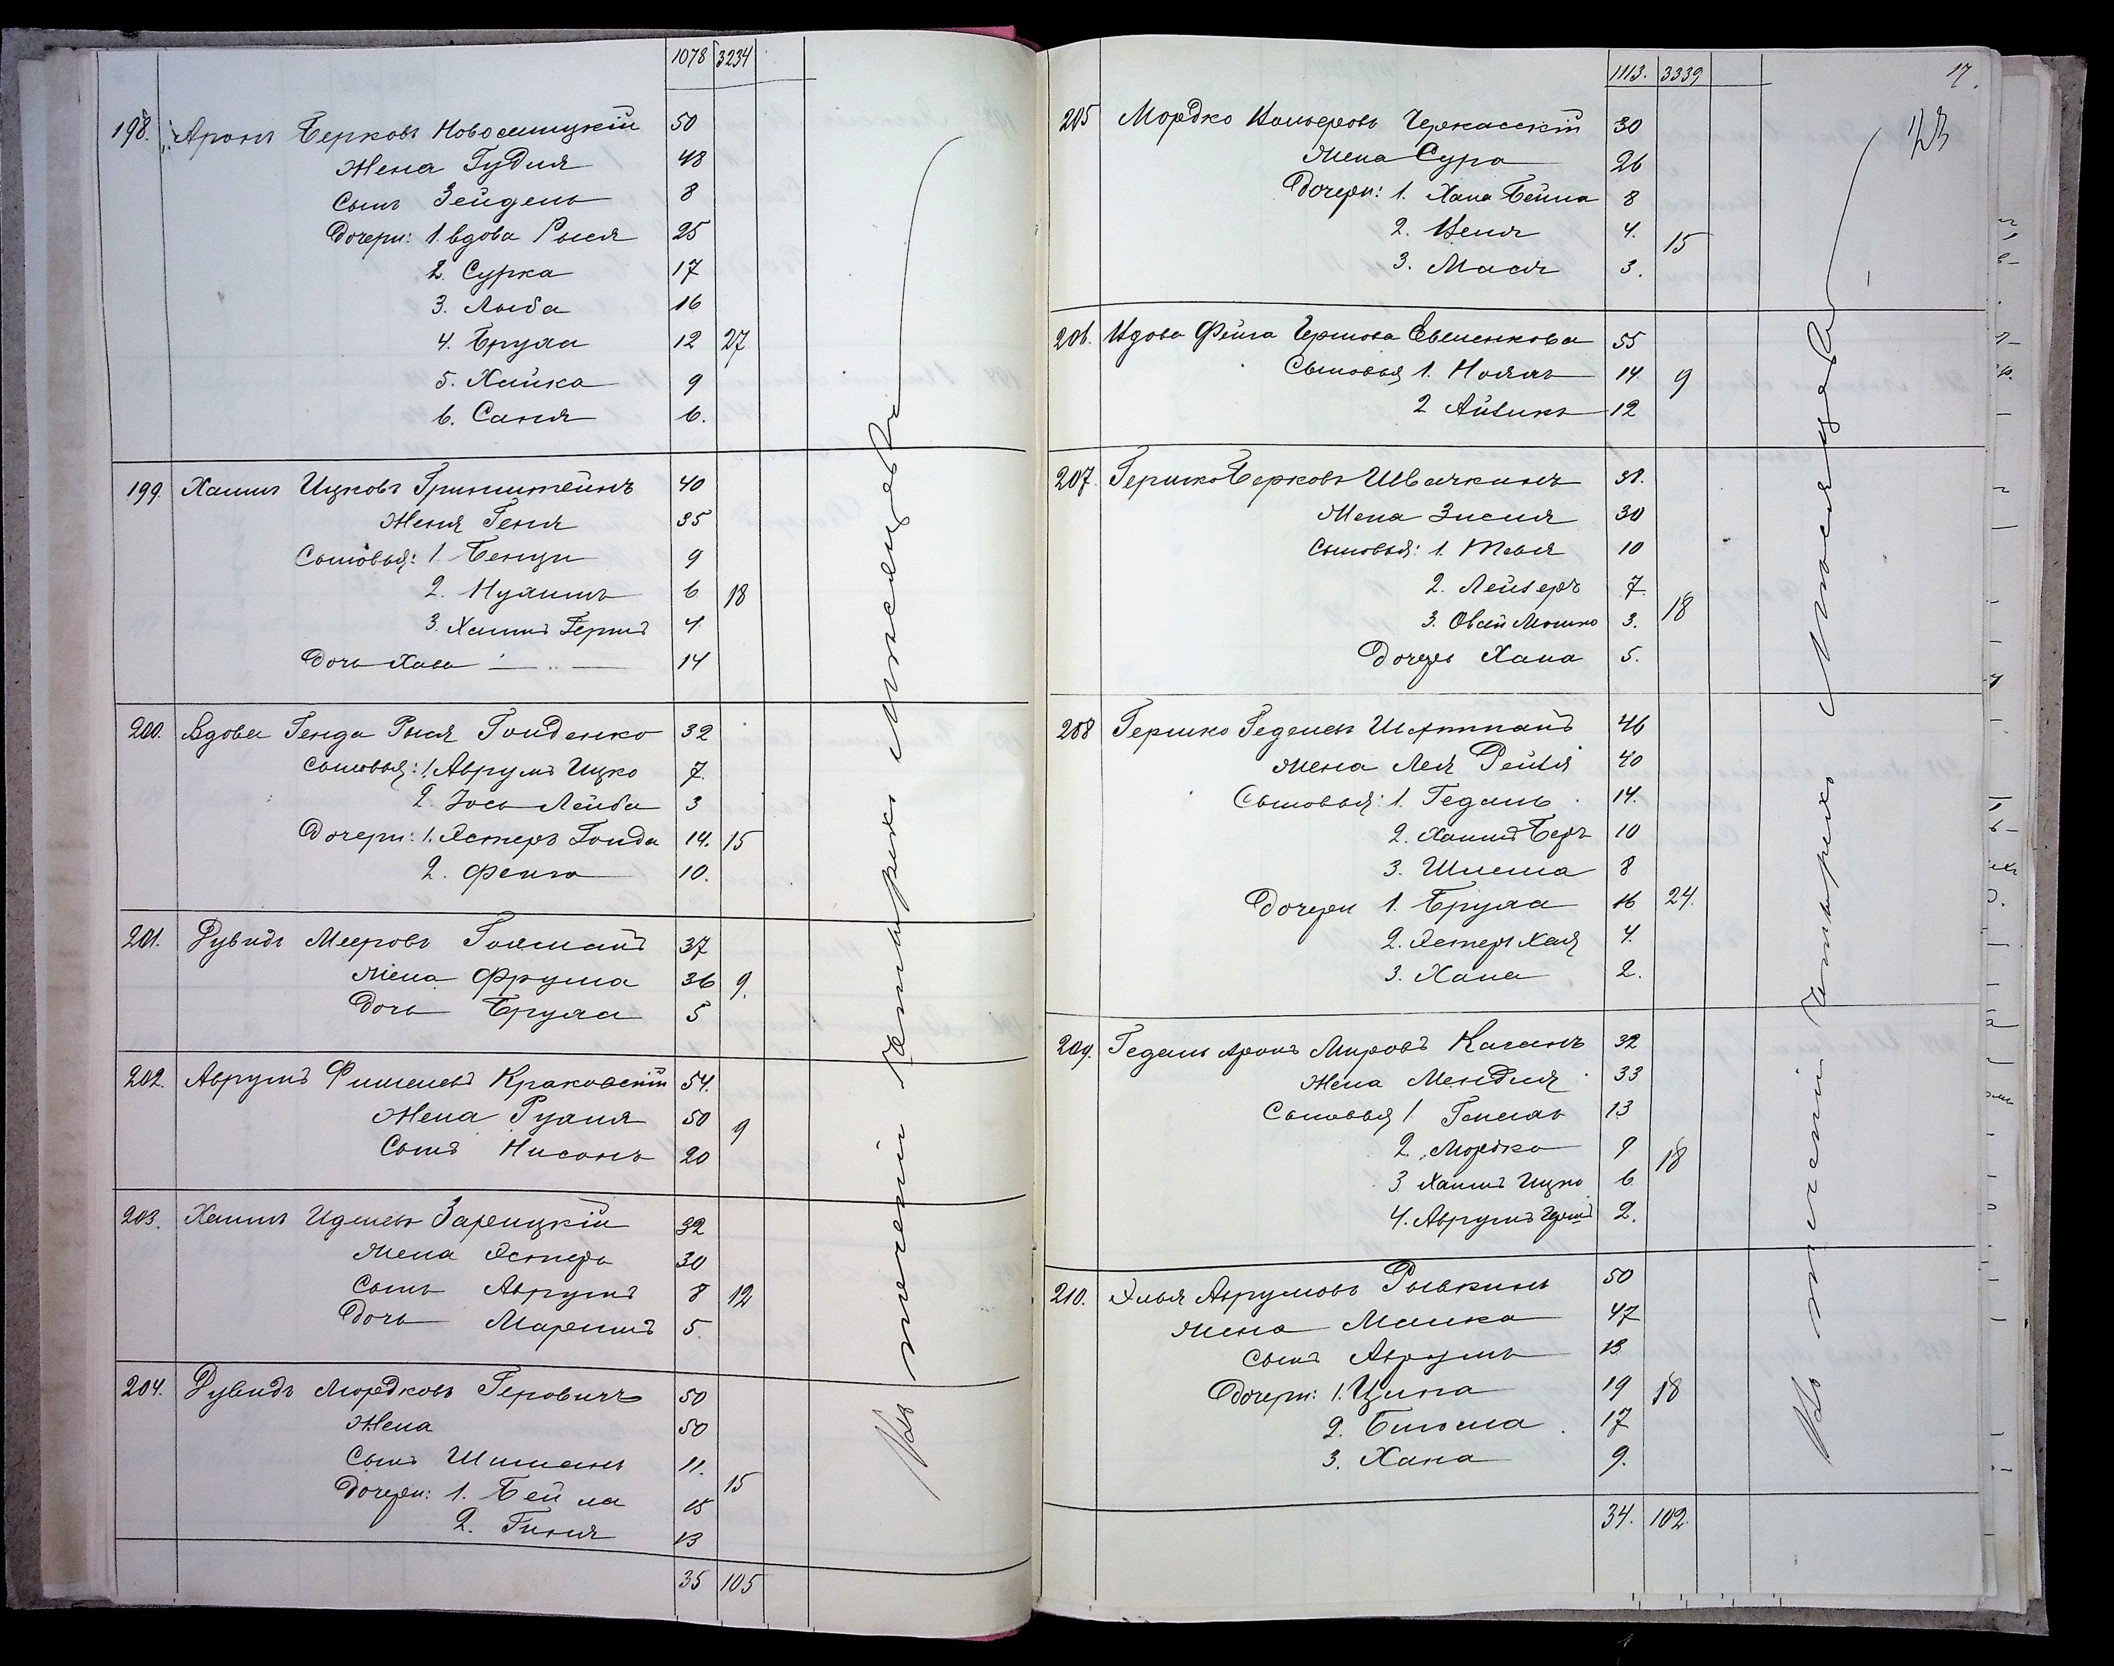 1078 3234
198. Аронъ Берковъ Новоселицкій 50
Жена Гудля 48
Сынъ Зейдель 8
Дочери: 1. вдова Рыся 25
2. Сурка 17
3. Лыба 16
4. Бруха 12 27
5. Хайка 9
6. Саня 6.
199. Хаимъ Ицковъ Гринштейнъ 40
Жена Геня 35
Сыновья: 1. Бенци 9
2. Нухимъ 6 18
3. Хаимъ Гершъ 4
Дочь Хава 14
200. Вдова Генда Рыся Гойденко 32
Сыновья: 1. Аврумъ Ицко 7.
2. Іось Лейба 3
Дочери: 1. Эстеръ Гойда 14. 15
2. Фейга 10.
201. Рувидъ Мееровъ 37
Жена Фрума 36 9.
Дочь Бруха 5
202. Аврумъ Фишелевъ Краковскій 54.
Жена Рухля 50 9
Сынъ Нисонъ 20
203. Хаимъ Иделевъ Зарицкій 32
Жена Эстеръ 30
Сынъ Аврумъ 8 12
Дочь Маріимъ 5.
204. Рувидъ Мордковъ Геровичъ 50
Жена 50
Сынъ Шимань 11.
Дочери: 1. Бейла 15 15
2. Гиня 13
35 105
Въ теченіи Четырехъ Мѣсяцевъ
1113. 3339 17.
205 Мордко Черкасскій 30
Жена Сура 26
Дочери: 1. Хана Бейла 8
2. Ценя 4. 15
3. Мася 3.
206. Вдова Фейга Гершова Евсеенкова 55
Сыновья 1. Нояхъ 14 9
2 Айзикъ 12
207. Гершко Берковъ Швачкинъ 31.
Жена Зисля 30
Сыновья: 1. Тевья 10
2. Лейзеръ 7.
3. Овсій Мошко 3. 18
Дочерь Хана 5.
208 Гершко Геделевъ 46
Жена Лея Рейзя 40
Сыновья: 1. Гедаль 14.
2. Хаимъ Беръ 10
3. Шлема 8
Дочери 1. Бруха 16 24.
2. Эстеръ Хая 4.
3. Хана 2.
209. Гедаль Аронъ Мировъ Каганъ 32
Жена Мендля 33
Сыновья 1. 13
2. Мордко 9
3 Хаимъ Ицко 6 18
4. Аврумъ Гершъ 2.
210. Эльья Аврумовъ Рывкинъ 50
Жена Малка 47
Сынъ Аврумъ 13
Дочери: 1. Ципа 19 18
2. Блюма 17
3. Хана 9.
34. 102.
Въ теченіи Четырехъ Мѣсяцевъ